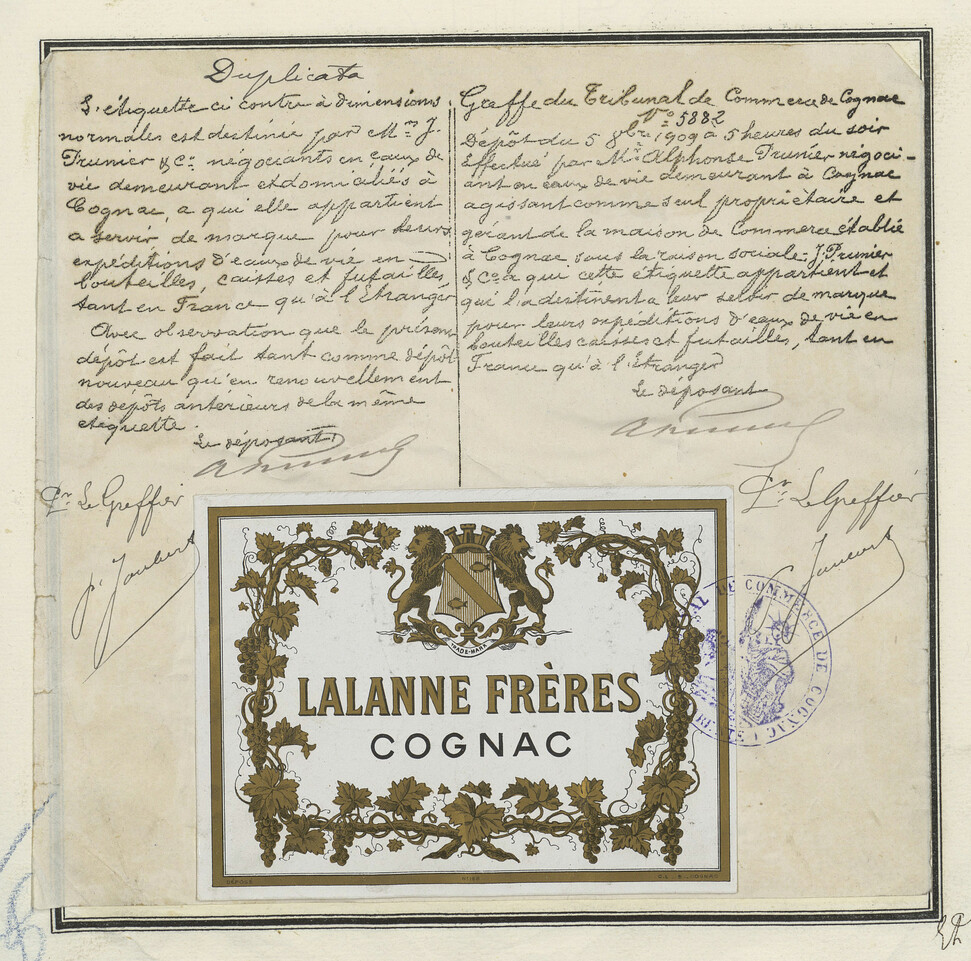 Duplicata
L'étiquette ci contre à dimensions
normales est destinée par Mrs J.
Prunier & Co négociants en eaux de
vie demeurant et domiciliés à
Cognac, a qui elle appartient
a servir de marque pour leurs
expéditions d'eaux de vie en
bouteilles, caisses et futailles
tant en France qu'à l'Etranger
Avec observation que le présent
dépôt est fait tant comme dépôt
nouveau qu'en renouvellement
des dépôts antérieurs de la même
etiquette.
Le déposant
Pr Le Greffier
Greffe du Tribunal de Commerce de Cognac
No 5882
Dépôt du 5 8bre 1909 à 5 heures du soir
Effectué par Mr Alphonse Prunier négoci-
ant en eaux de vie demeurant à Cognac
agissant comme seul propriètaire et
gérant de la maison de Commerce établie
à Cognac sous la raison sociale J. Prunier
& Co a qui cette étiquette appartient et
qui l'a destinent a leur servir de marque
pour leurs expéditions d'eaux de vie en
bouteilles caisses et futailles, tant en
France qu'à l'Etranger
Le déposant
Pr Le Greffier
TRADE-MARK
LALANNE FRÈRES
COGNAC
DÉPOSÉ
DE COMMERCE DE COGNAC